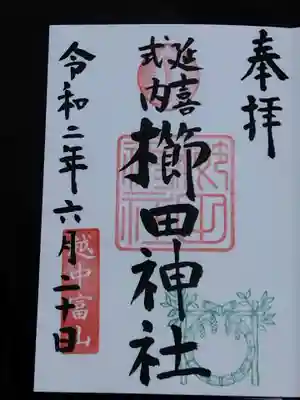 奉拝
延喜
式内
櫛田神社
令和二年六月二十日
越中富山